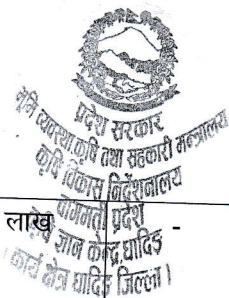 प्रदेश सरकार
भूमि व्यवस्था कृषि तथा सहकारी मन्त्रालय
कृषि विकास निर्देशनालय
बागमती प्रदेश
लाख
-
ज्ञान केन्द्र धादिङ
कार्य क्षेत्र धादिङ जिल्ला ।